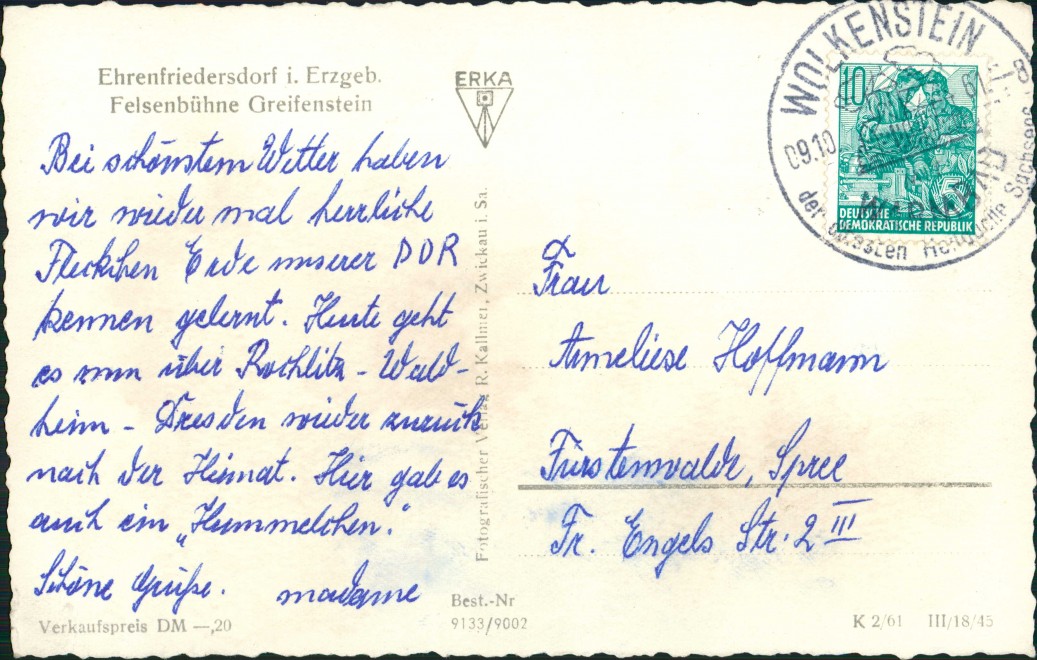 Ehrenfriedersdorf i. Erzgeb.
Felsenbühne Greifenstein
ERKA
Bei schönstem Wetter haben
wir wieder mal herrliche
Fleckchen Erde unserer DDR
kennen gelernt. Heute geht
es nun über Rochlitz - Wald-
heim - Dresden wieder zurück
nach der Heimat. Hier gab es
auch ein „Hummelchen."
Schöne Grüße. madame
Verkaufspreis DM —,20
Fotografischer Verlag R. Kallmer, Zwickau i. Sa.
Best.-Nr
9133/9002
WOLKENSTEIN
09.10
61
8
WARMBAD
der Heilquelle Sachsens
10
5
DEUTSCHE
DEMOKRATISCHE REPUBLIK
Frau
Anneliese Hoffmann
Fürstenwalde, Spree
Fr. Engels Str. 2 III
K 2/61 III/18/45